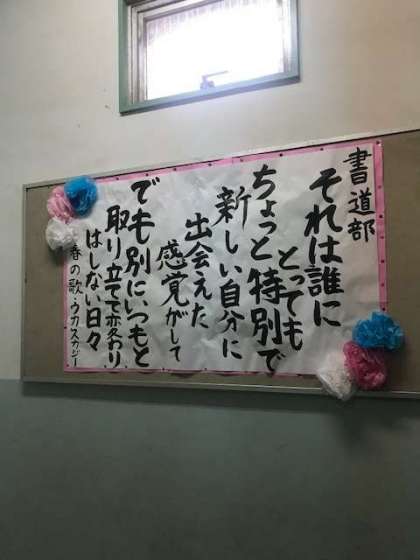 書道部
それは誰に
とっても
ちょっと特別で
新しい自分に
出会えた
感覚がして
でも別に、いつもと
取り立てて変わり
はしない日々
春の歌・ウカスカジー